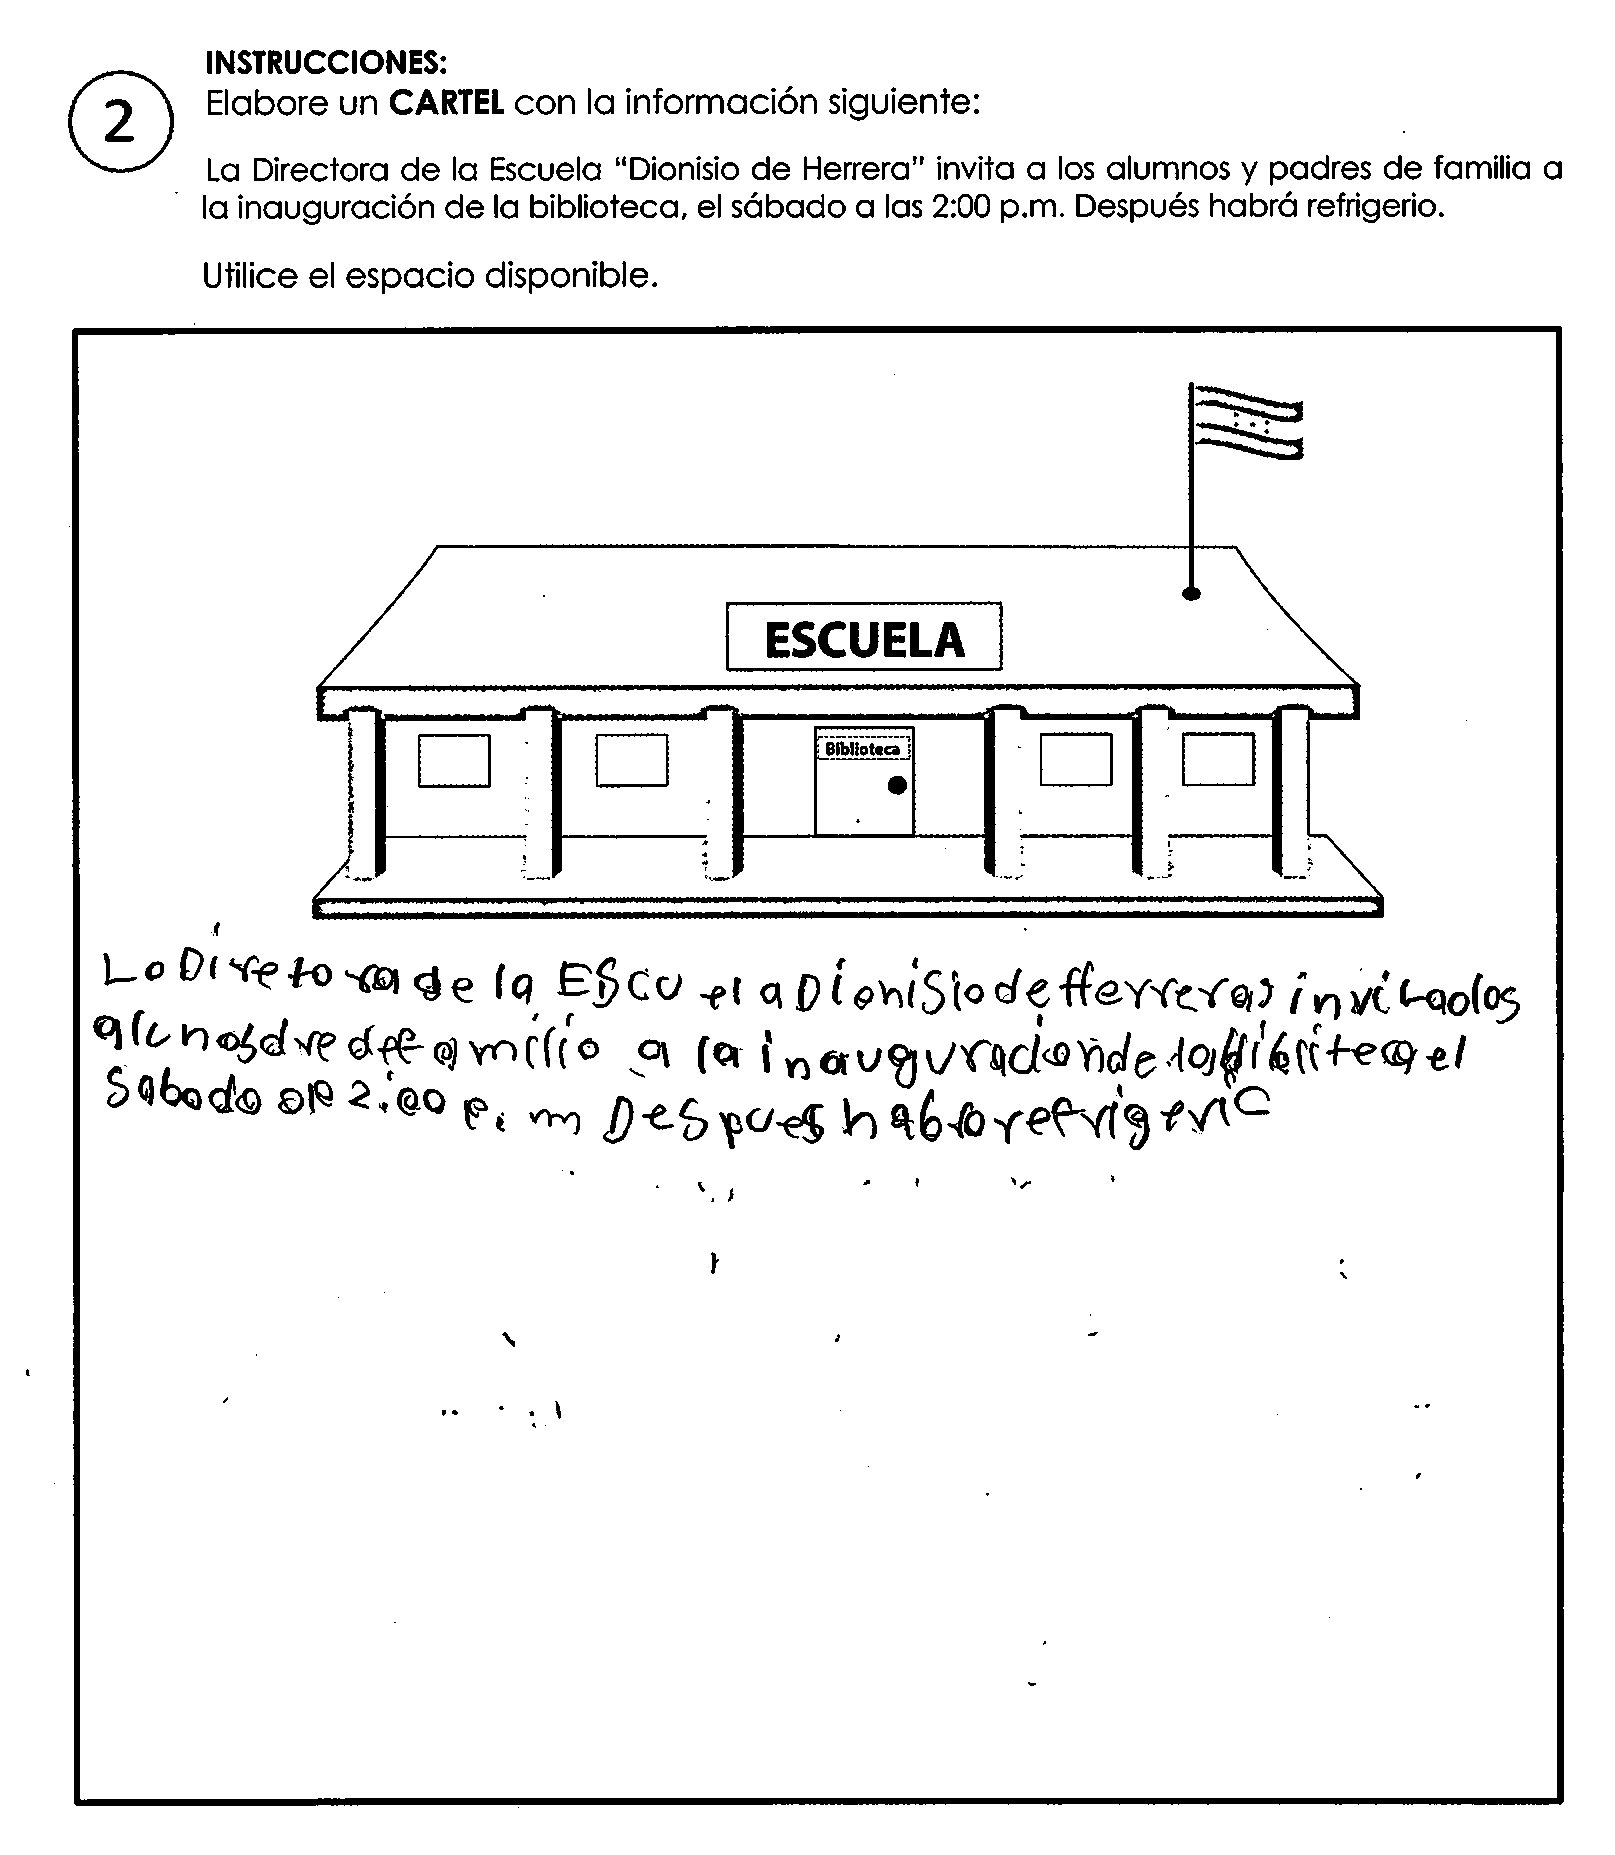 INSTRUCCIONES:
2
Elabore un CARTEL con la información siguiente:
La Directora de la Escuela “Dionisio de Herrera” invita a los alumnos y padres de familia a
la inauguración de la biblioteca, el sábado a las 2:00 p.m. Después habrá refrigerio.
Utilice el espacio disponible.
ESCUELA
Biblioteca
La Diretora de la EScu ela Dionisio de Herreras invitaolos
de familio a la inauguracion de el
Sabado 2:00 p.m Despues habro refrigerio